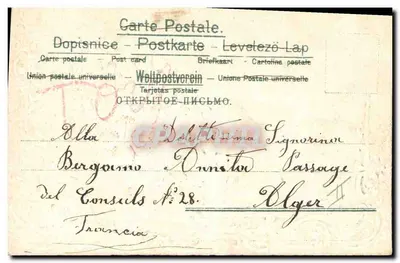 Carte Postale.
Dopisnice - Postkarte - Levelező-Lap
Carte postale - Post card Briefkaart - Cartolina postale
Union postale universelle - Weltpostverein - Unione Postale universelle
Tarjetas postale
ОТКРЫТОЕ-ПИСЬМО.
TO
Alla Dilettissima Signorina
Bergamo Annita Passage
del Consuls No. 28. Alger II
Francia